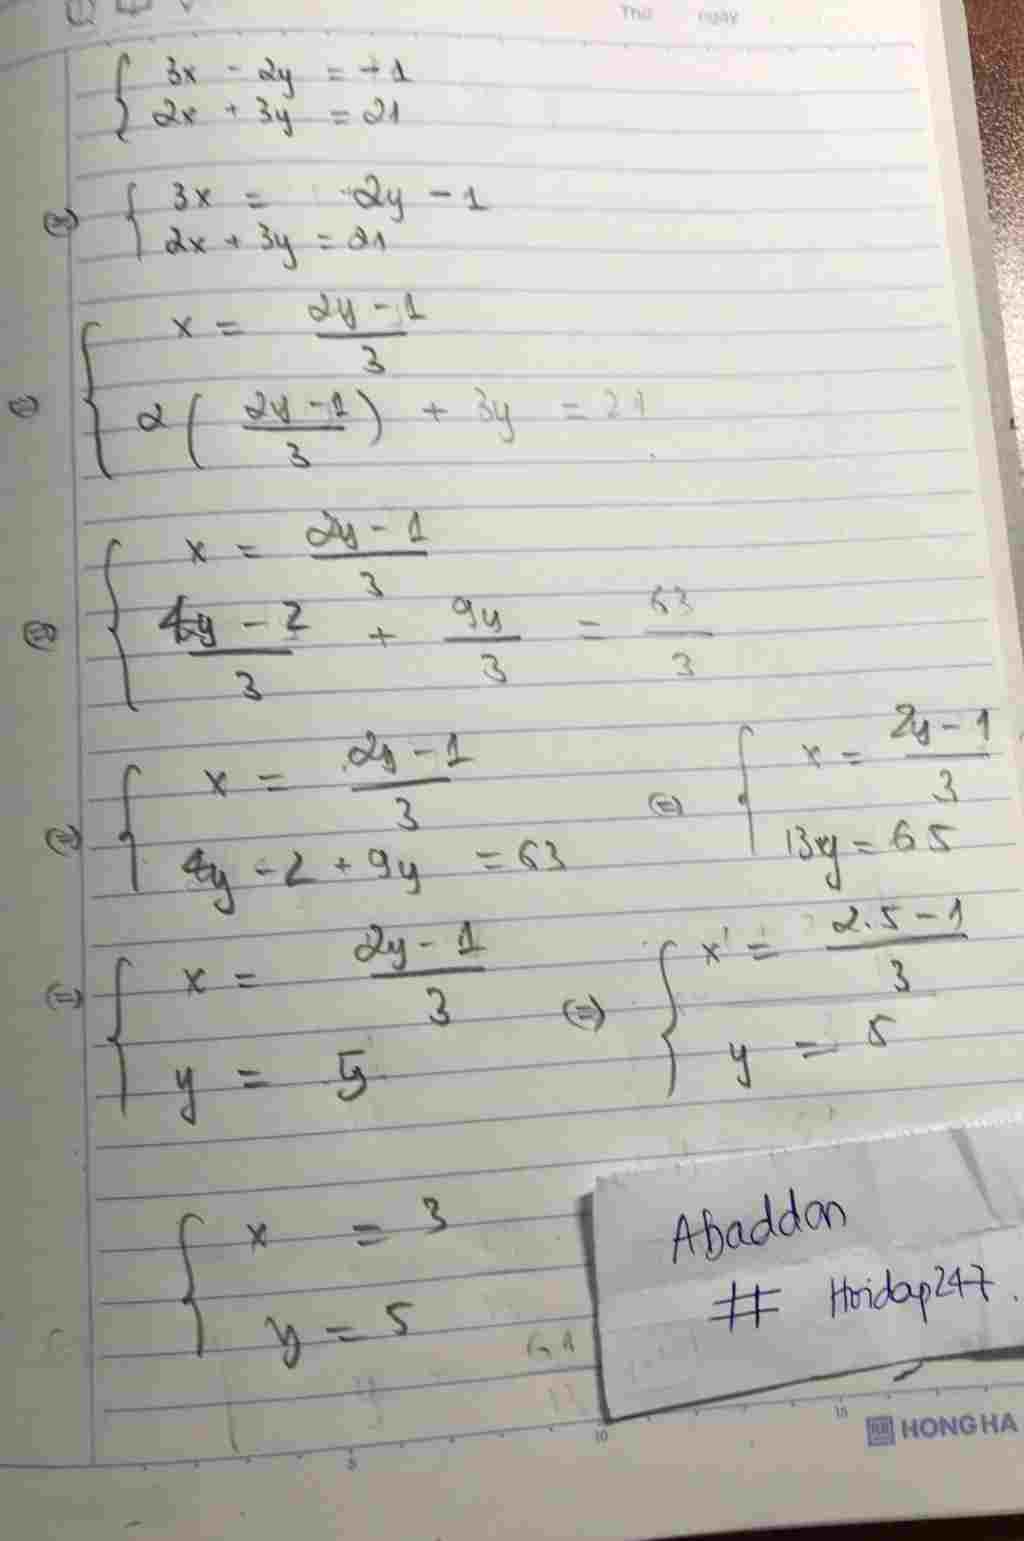 Thứ ngày
{ 3x - 2y = -1
2x + 3y = 21
⇔ { 3x = 2y - 1
2x + 3y = 21
⇔ { x = (2y - 1)/3
2((2y - 1)/3) + 3y = 21
⇔ { x = (2y - 1)/3
(4y - 2)/3 + 9y/3 = 63/3
⇔ { x = (2y - 1)/3
4y - 2 + 9y = 63
⇔ { x = (2y - 1)/3
13y = 65
⇔ { x = (2y - 1)/3
y = 5
⇔ { x = (2.5 - 1)/3
y = 5
{ x = 3
y = 5
Abaddon
# Hoidap247.
5 10 15
HONG HA